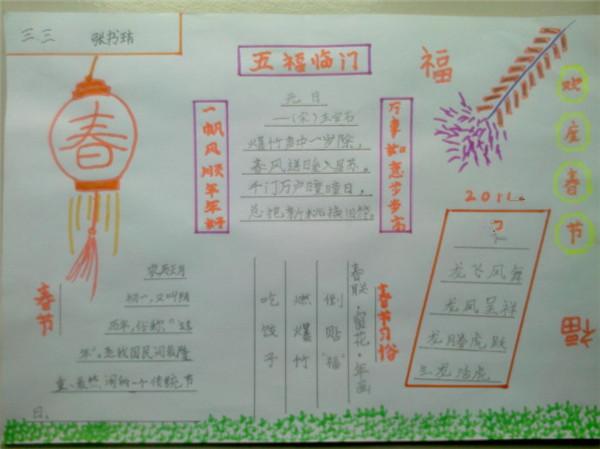 三.三 张书琦
春
五福临门
福
欢度春节
一帆风顺年年好
万事如意步步高
元日
——(宋)王安石
爆竹声中一岁除，
春风送暖入屠苏。
千门万户曈曈日，
总把新桃换旧符。
2012
龙飞凤舞
龙凤呈祥
龙腾虎跃
生龙活虎
福
春节
农历正月
初一，又叫阴
历年，俗称“过
年”。是我国民间最隆
重、最热闹的一个传统节
日。
春节习俗
春联·窗花·年画
倒贴“福”
燃爆竹
吃饺子